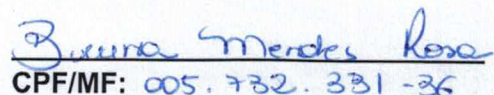 Bruna Mendes Rosa
CPF/MF: 005.732.331-36